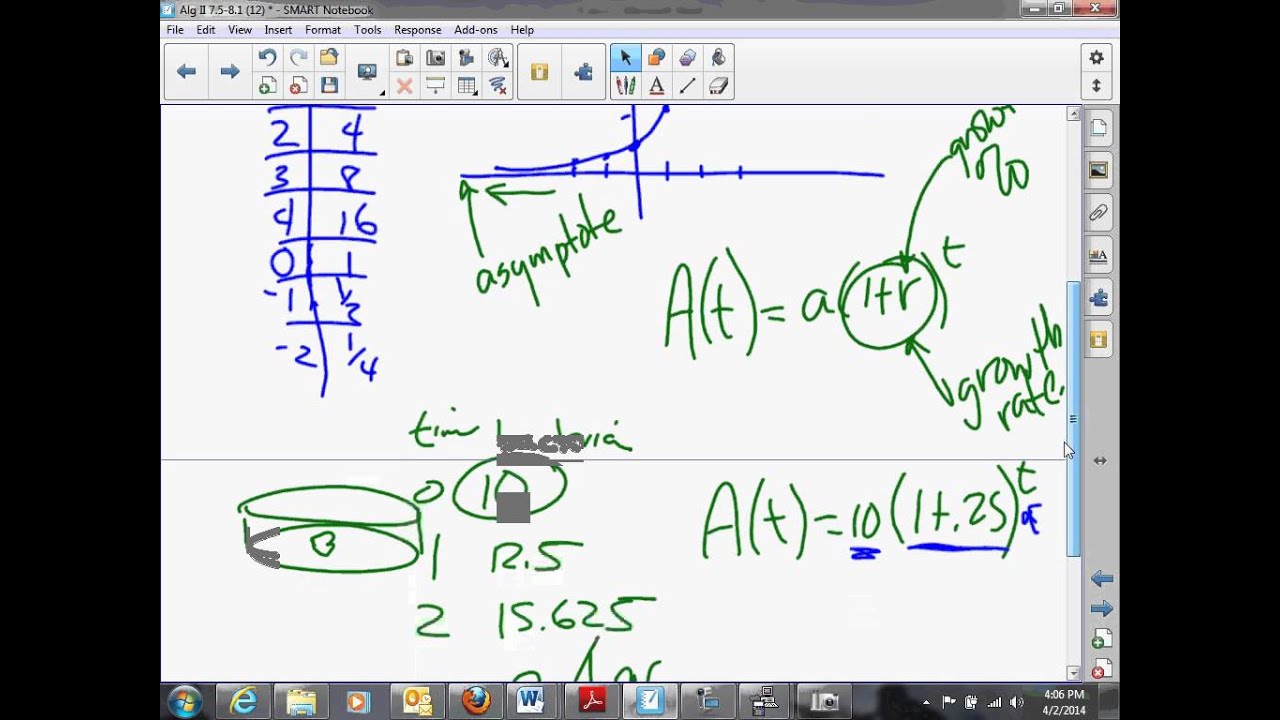 Alg II 7.5-8.1 (12) * - SMART Notebook
File Edit View Insert Format Tools Response Add-ons Help
2 4
3 8
4 16
0 1
-1 1/3
-2 1/4
asymptote
growth
%
A(t) = a(1+r)^t
growth
rate
time
0 10
1 12.5
2 15.625
A(t) = 10(1+.25)^t
4:06 PM
4/2/2014